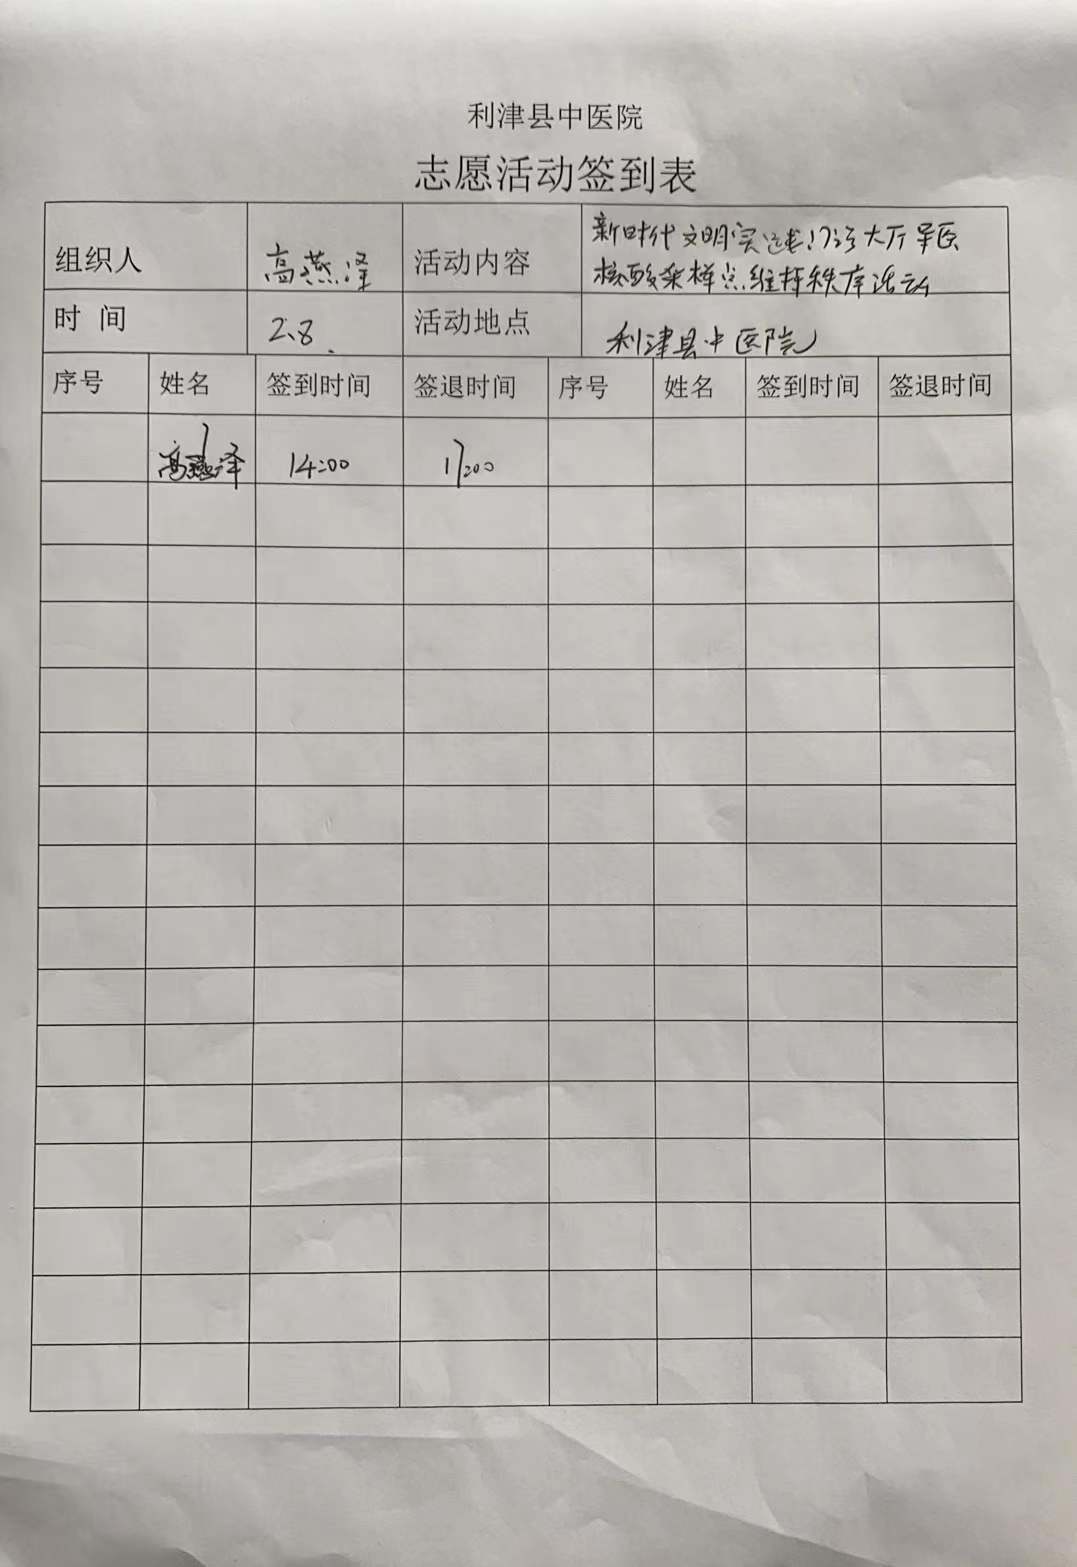 利津县中医院
志愿活动签到表
组织人 高燕泽 活动内容 新时代文明实践门诊大厅导医
核酸采样点维持秩序活动
时 间 2.8. 活动地点 利津县中医院
序号 姓名 签到时间 签退时间 序号 姓名 签到时间 签退时间
高燕泽 14:00 17:00